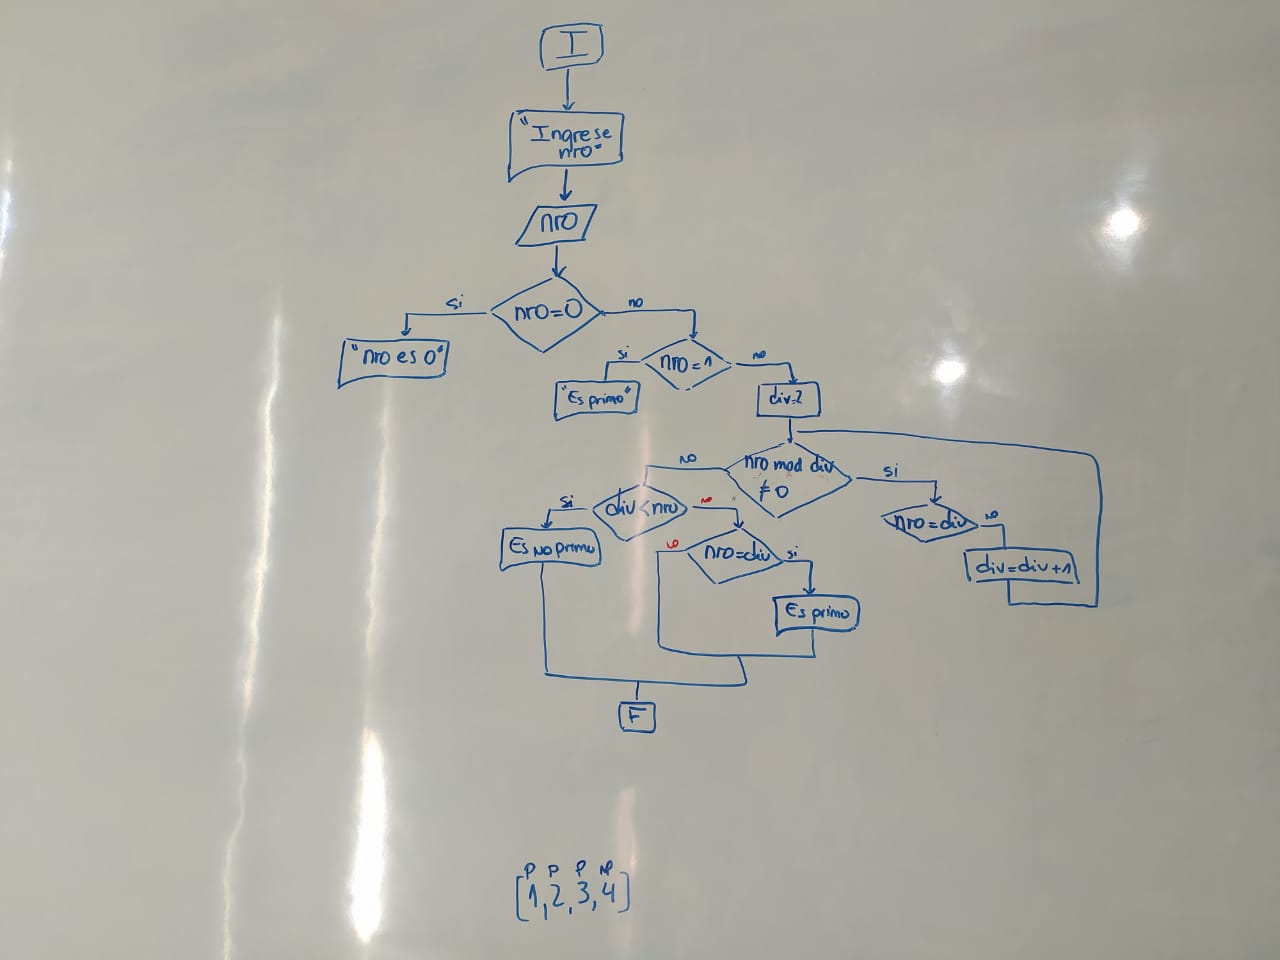 I
"Ingrese
nro"
nro
nro=0
si
no
"nro es 0"
nro=1
si
no
"Es primo"
div=2
nro mod div
≠0
NO
si
div<nro
si
no
nro=div
no
Es NO primo
nro=div
no
si
div=div+1
Es primo
F
P P P NP
[1,2,3,4]